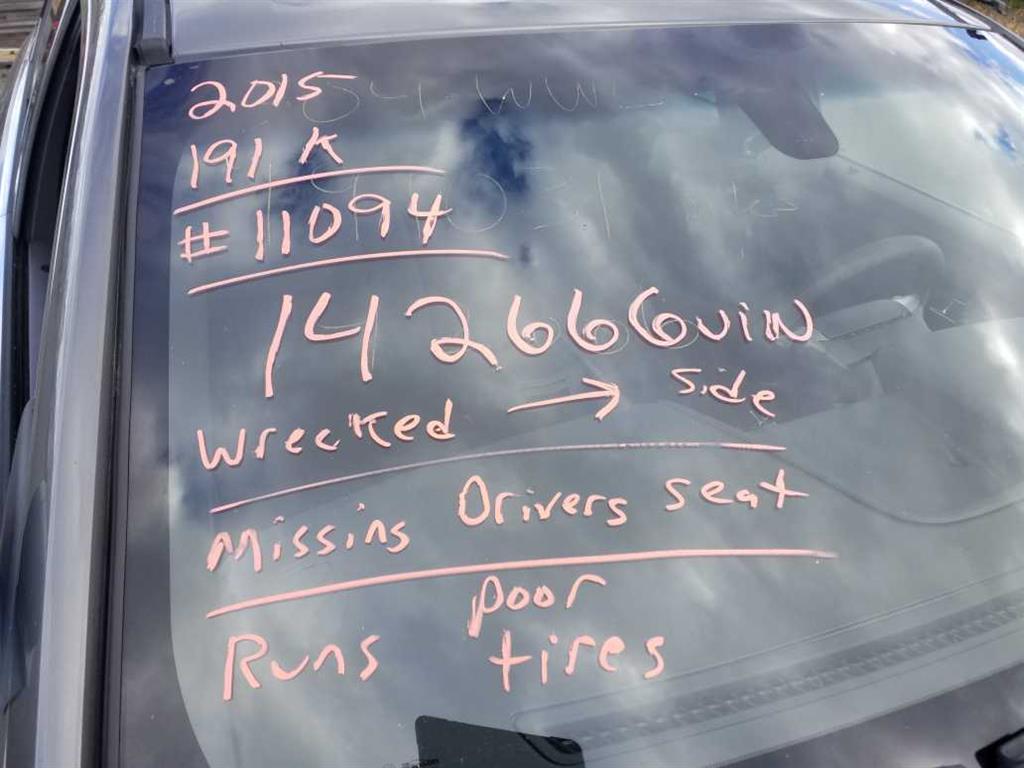 2015
191 K
#11094
142666 VIN
Wrecked → Side
Missing Drivers seat
Runs poor tires